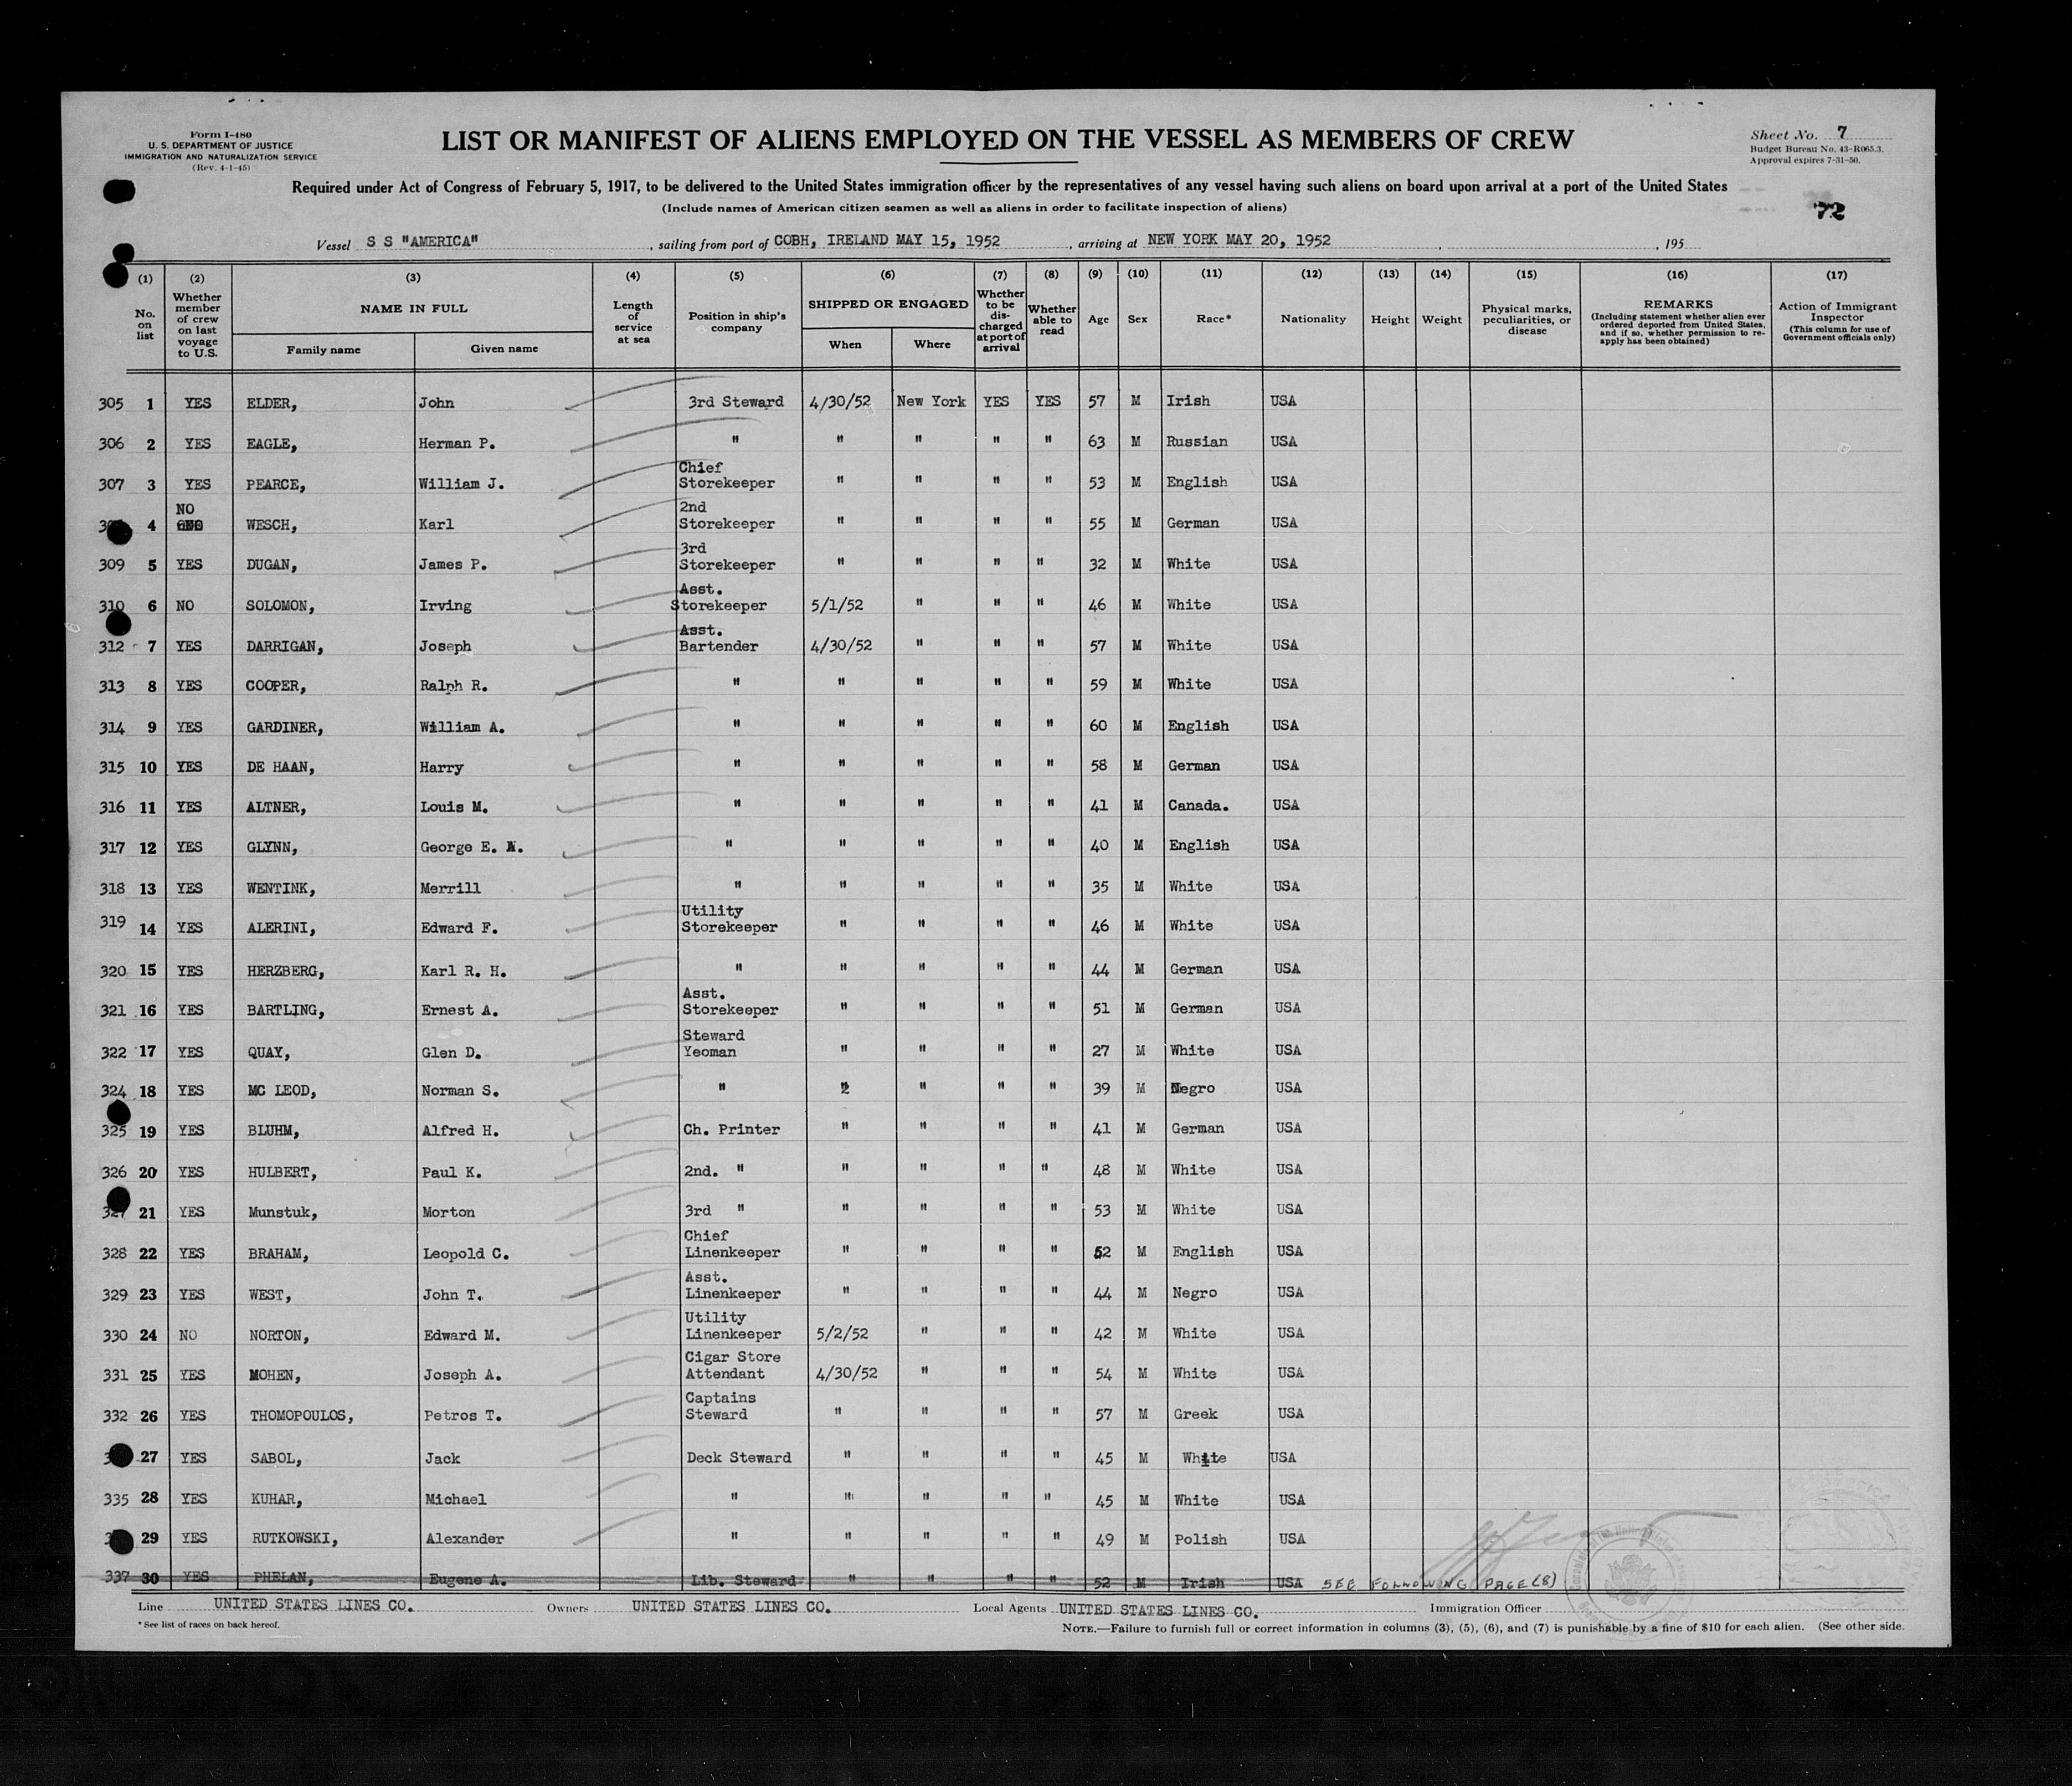 Form I-480
U. S. DEPARTMENT OF JUSTICE
IMMIGRATION AND NATURALIZATION SERVICE
(Rev. 4-1-45)
LIST OR MANIFEST OF ALIENS EMPLOYED ON THE VESSEL AS MEMBERS OF CREW
Sheet No. 7
Budget Bureau No. 43-R065.3.
Approval expires 7-31-50.
Required under Act of Congress of February 5, 1917, to be delivered to the United States immigration officer by the representatives of any vessel having such aliens on board upon arrival at a port of the United States
(Include names of American citizen seamen as well as aliens in order to facilitate inspection of aliens)
72
Vessel S S "AMERICA", sailing from port of COBH, IRELAND MAY 15, 1952, arriving at NEW YORK MAY 20, 1952, 195
(1) No. on list
(2) Whether member of crew on last voyage to U.S.
(3) NAME IN FULL
Family name Given name
(4) Length of service at sea
(5) Position in ship's company
(6) SHIPPED OR ENGAGED
When Where
(7) Whether to be discharged at port of arrival
(8) Whether able to read
(9) Age
(10) Sex
(11) Race*
(12) Nationality
(13) Height
(14) Weight
(15) Physical marks, peculiarities, or disease
(16) REMARKS
(Including statement whether alien ever ordered deported from United States, and if so, whether permission to re-apply has been obtained)
(17) Action of Immigrant Inspector
(This column for use of Government officials only)
305 1 YES ELDER, John 3rd Steward 4/30/52 New York YES YES 57 M Irish USA
306 2 YES EAGLE, Herman P. " " " " " 63 M Russian USA
307 3 YES PEARCE, William J. Chief Storekeeper " " " " 53 M English USA
4 NO WESCH, Karl 2nd Storekeeper " " " " 55 M German USA
309 5 YES DUGAN, James P. 3rd Storekeeper " " " " 32 M White USA
310 6 NO SOLOMON, Irving Asst. Storekeeper 5/1/52 " " " 46 M White USA
312 7 YES DARRIGAN, Joseph Asst. Bartender 4/30/52 " " " 57 M White USA
313 8 YES COOPER, Ralph R. " " " " " 59 M White USA
314 9 YES GARDINER, William A. " " " " " 60 M English USA
315 10 YES DE HAAN, Harry " " " " " 58 M German USA
316 11 YES ALTNER, Louis M. " " " " " 41 M Canada. USA
317 12 YES GLYNN, George E. " " " " " 40 M English USA
318 13 YES WENTINK, Merrill " " " " " 35 M White USA
319 14 YES ALERINI, Edward F. Utility Storekeeper " " " " 46 M White USA
320 15 YES HERZBERG, Karl R. H. " " " " " 44 M German USA
321 16 YES BARTLING, Ernest A. Asst. Storekeeper " " " " 51 M German USA
322 17 YES QUAY, Glen D. Steward Yeoman " " " " 27 M White USA
324 18 YES MC LEOD, Norman S. " " " " " 39 M Negro USA
325 19 YES BLUHM, Alfred H. Ch. Printer " " " " 41 M German USA
326 20 YES HULBERT, Paul K. 2nd. " " " " " 48 M White USA
327 21 YES Munstuk, Morton 3rd " " " " " 53 M White USA
328 22 YES BRAHAM, Leopold C. Chief Linenkeeper " " " " 52 M English USA
329 23 YES WEST, John T. Asst. Linenkeeper " " " " 44 M Negro USA
330 24 NO NORTON, Edward M. Utility Linenkeeper 5/2/52 " " " 42 M White USA
331 25 YES MOHEN, Joseph A. Cigar Store Attendant 4/30/52 " " " 54 M White USA
332 26 YES THOMOPOULOS, Petros T. Captains Steward " " " " 57 M Greek USA
27 YES SABOL, Jack Deck Steward " " " " 45 M White USA
335 28 YES KUHAR, Michael " " " " " 45 M White USA
29 YES RUTKOWSKI, Alexander " " " " " 49 M Polish USA
337 30 YES PHELAN, Eugene A. Lib. Steward " " " " 52 M Irish USA SEE FOLLOWING PAGE (8)
Line UNITED STATES LINES CO. Owners UNITED STATES LINES CO. Local Agents UNITED STATES LINES CO. Immigration Officer
* See list of races on back hereof.
NOTE.—Failure to furnish full or correct information in columns (3), (5), (6), and (7) is punishable by a fine of $10 for each alien. (See other side.